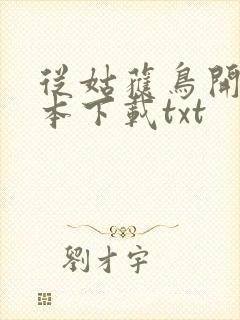 從姑蘇鳥開
本下載txt
劉才宇